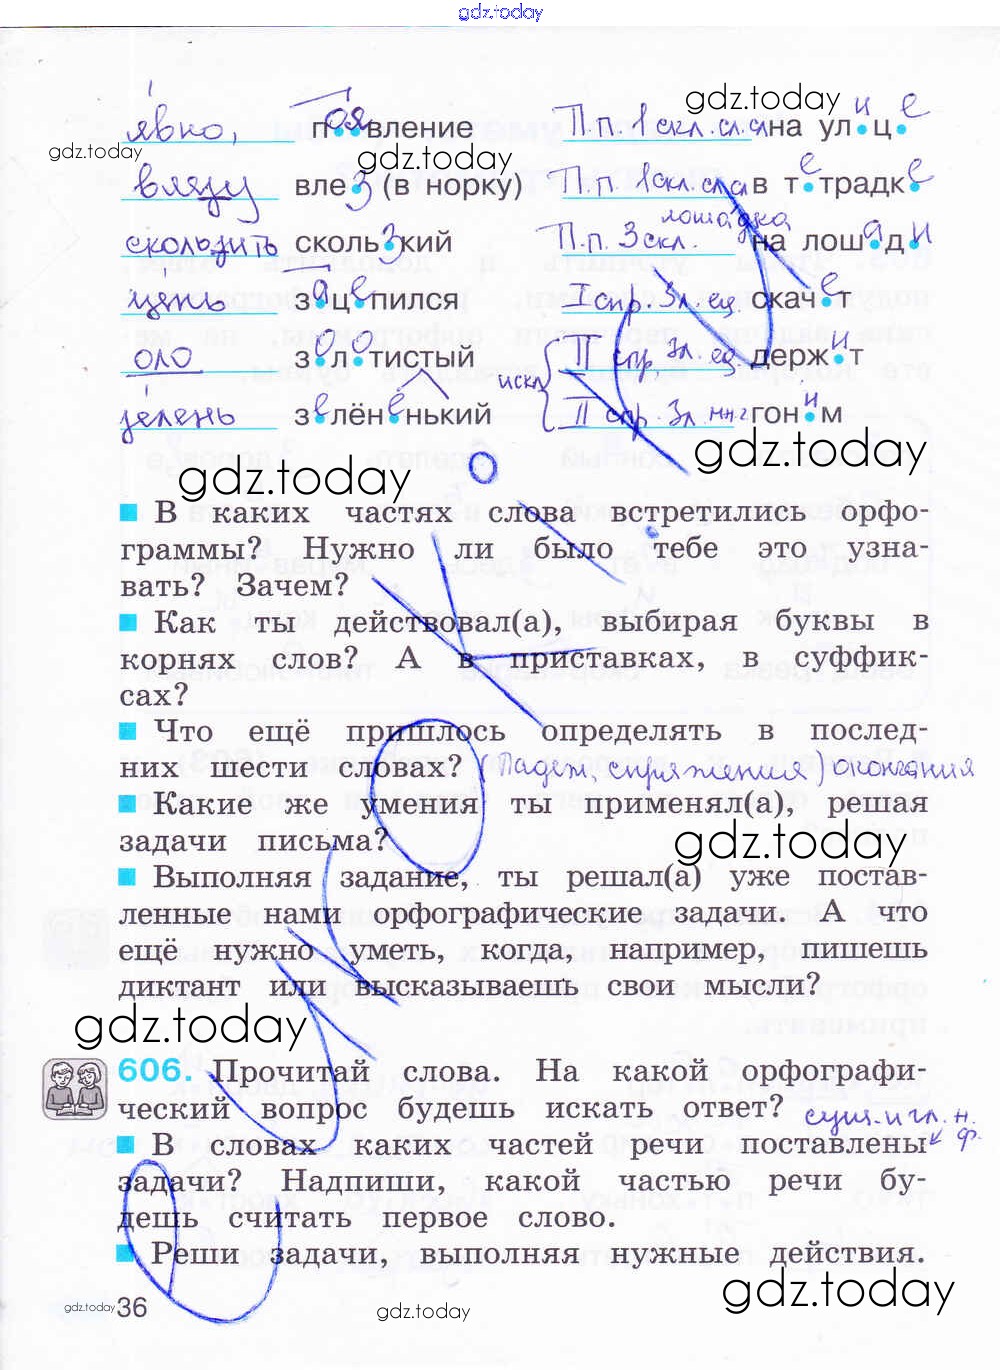 gdz.today
явно, появление П.п. 1 скл. на улице
gdz.today
gdz.today
gdz.today
влязу влез (в норку) П.п. 1 скл. в тетрадке
лошадка
скользить скользкий П.п. 3 скл. на лошади
цепь зацепился I спр. 3л. ед. скачет
оло золотистый II спр. 3л. ед. держит
искл
зелень зелёненький II спр. 3л. мн.ч гоним
gdz.today
gdz.today
В каких частях слова встретились орфо-
граммы? Нужно ли было тебе это узна-
вать? Зачем?
Как ты действовал(а), выбирая буквы в
корнях слов? А в приставках, в суффик-
сах?
Что ещё пришлось определять в послед-
них шести словах? (Падеж, спряжения) окончания
Какие же умения ты применял(а), решая
задачи письма?
gdz.today
Выполняя задание, ты решал(а) уже постав-
ленные нами орфографические задачи. А что
ещё нужно уметь, когда, например, пишешь
диктант или высказываешь свои мысли?
gdz.today
606. Прочитай слова. На какой орфографи-
ческий вопрос будешь искать ответ? сущ. и гл. н.
В словах каких частей речи поставлены ф.
задачи? Надпиши, какой частью речи бу-
дешь считать первое слово.
Реши задачи, выполняя нужные действия.
gdz.today
gdz.today
36
gdz.today